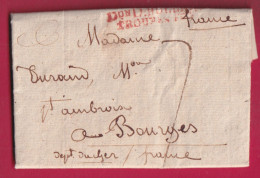 france
Madame
Durand, M.on
St ambroix
a Bourges
dept du cher / france
7